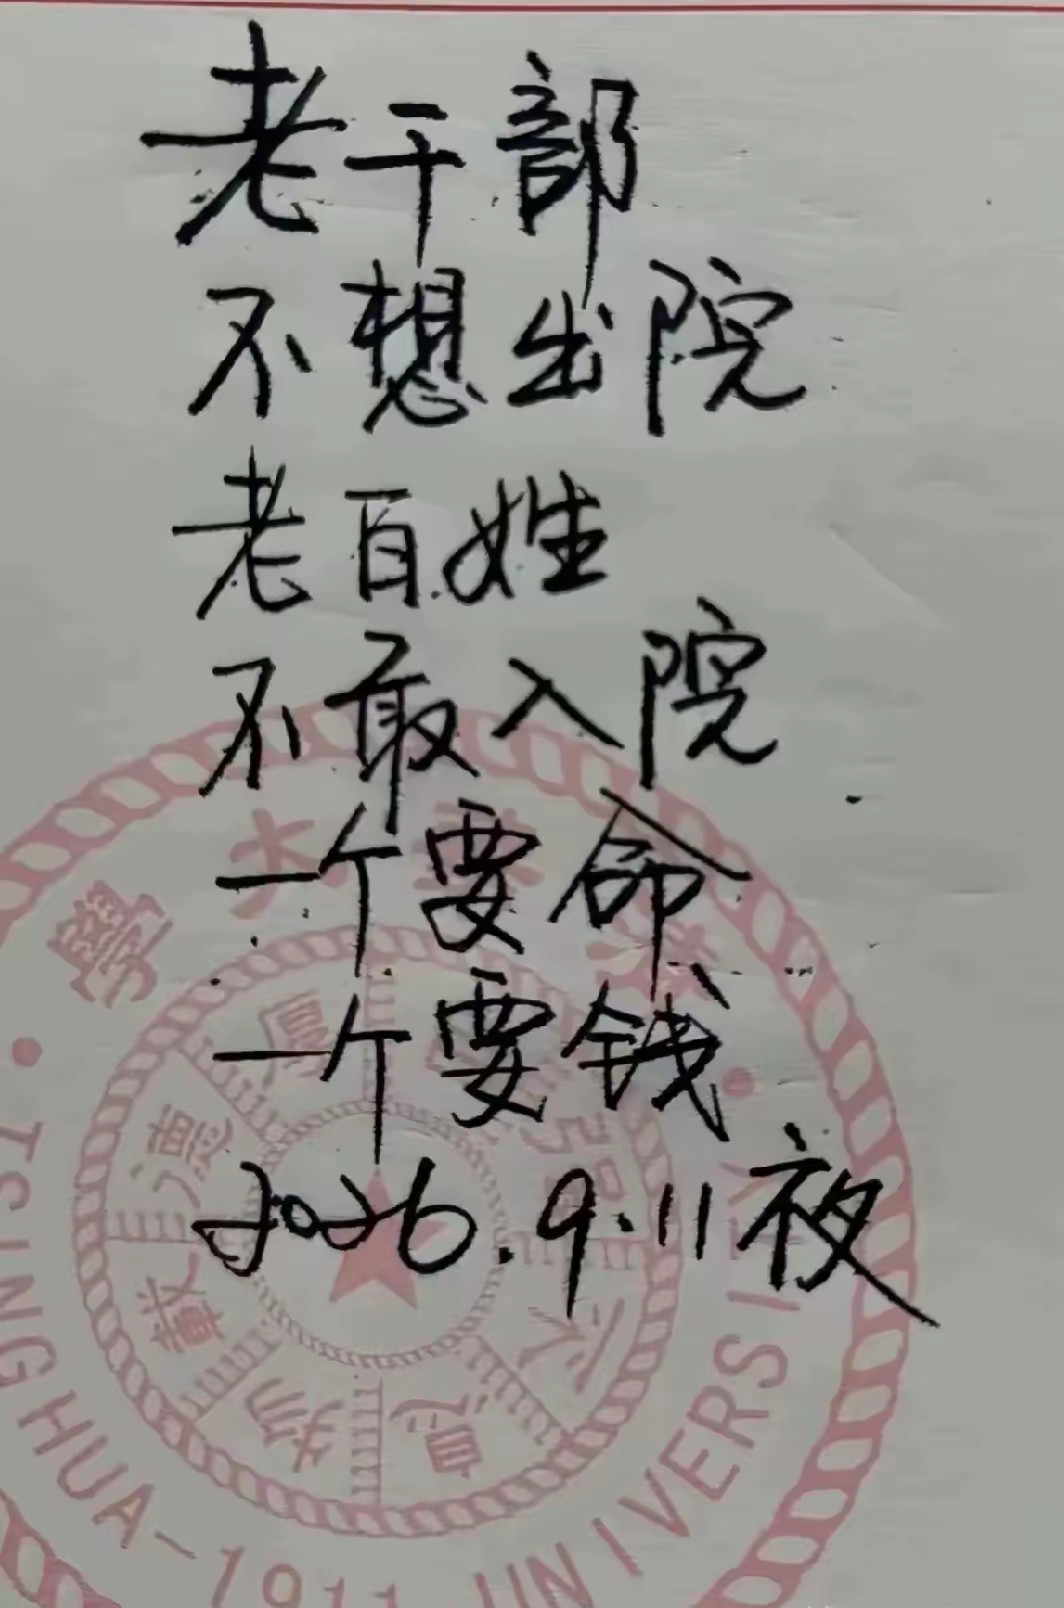 老干部
不想出院
老百姓
不敢入院
一个要命
一个要钱
2026.9.11夜
學大華清
TSINGHUA-1911-UNIVERSITY